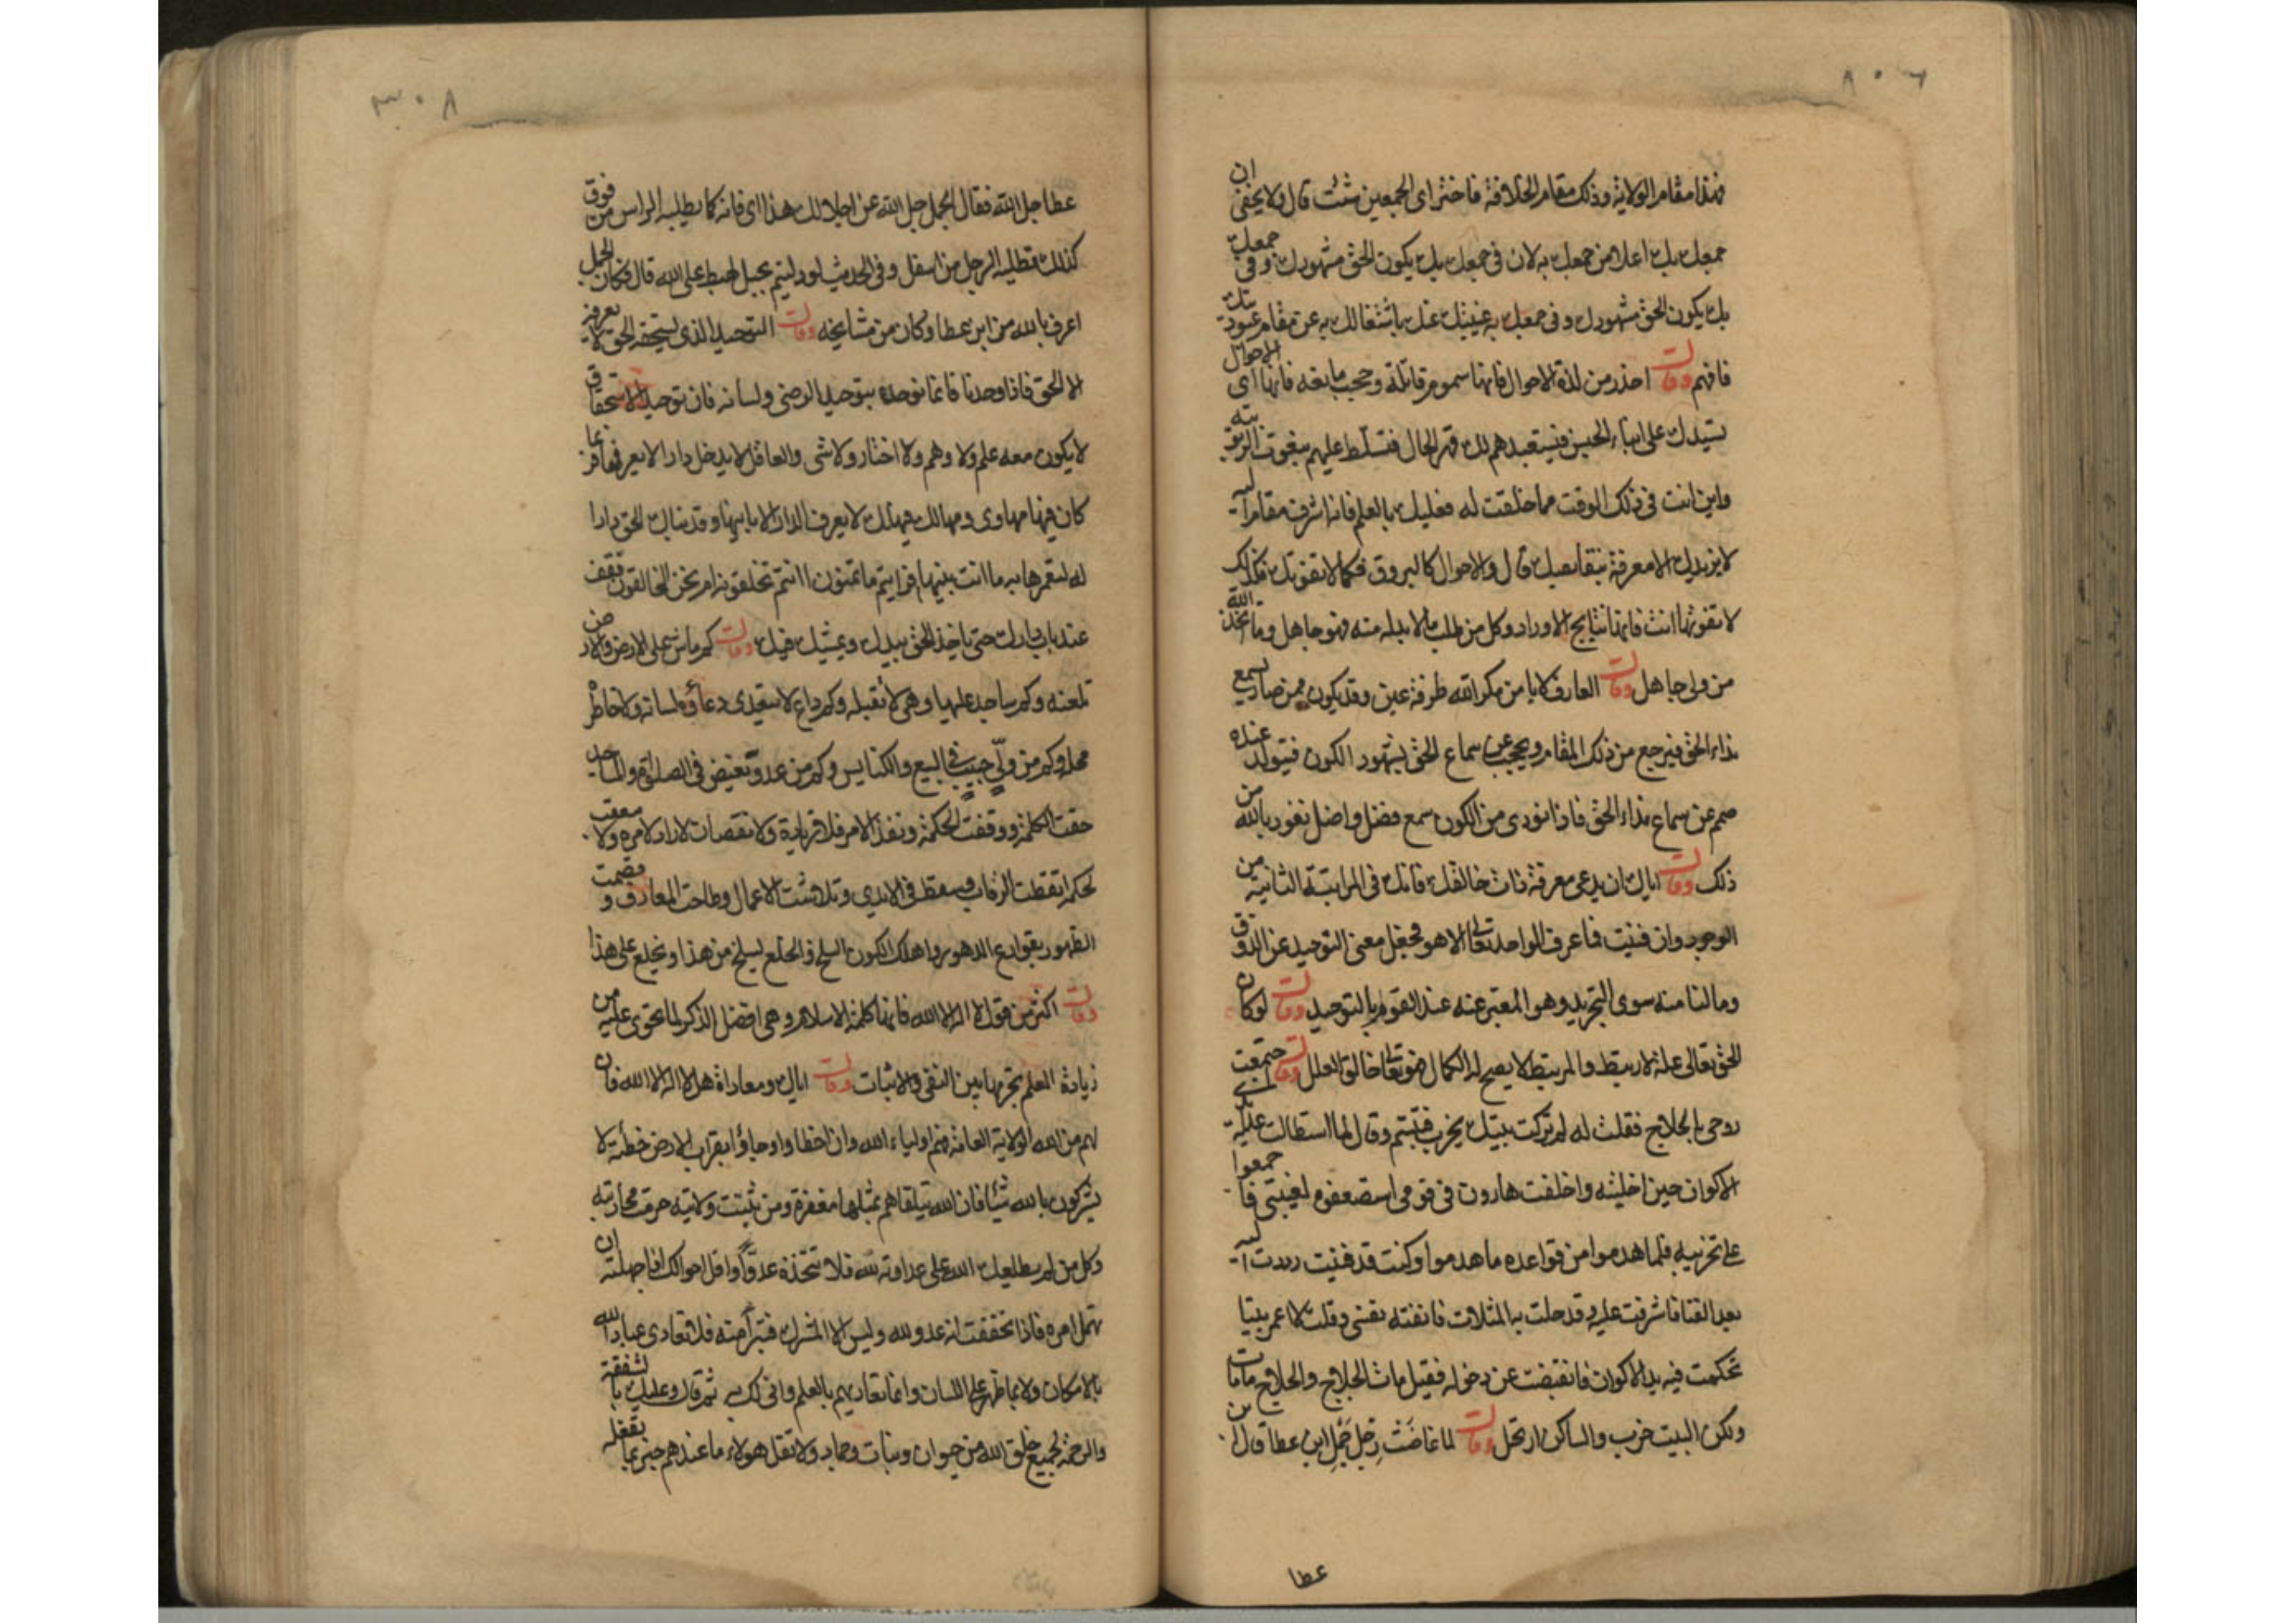 فهذا مقام الولاية وذلك مقام الخلافة فاختر اى الجمعين شئت قال ولا يخفى ان
جمعك بك اعلا من جمعك به لان فى جمعك بك يكون الحق مشهودك وفى جمعك
بك يكون الحق مشهودك وفى جمعك به غيبتك عنك باشتغالك به عن مقام عبوديتك
فافهم وقال احذر من لذة الاحوال فانها سموم قاتلة وحجب مانعه فانها اى الاحوال
تسيدك على ابناء الجنس فيستعبدهم لك قهر الحال فتسلط عليهم بنعوت الربوبيته
واين انت فى ذلك الوقت مما خلقت له فعليك بالعلم فانه اشرف مقام اليه
لا يزيدك الا معرفة بنقايصك قال والاحوال كالبروق فكما لا تفوتك فكذلك
لا تفوتها انت فانها نتايج الاوراد وكل من طلب ما لا بد له منه فهو جاهل وما اتخذ الله
من ولى جاهل وقال العارف لا يامن مكر الله طرفة عين وقد يكون ممن صار يسمع
نداء الحق فيرجع من ذلك المقام ويحجب عن سماع الحق لشهود الكون فيتولد عنده
صمم عن سماع نداء الحق فاذا نودى من الكون سمع فضل واضل نعوذ بالله من
ذلك وقال اياك ان يدعى معرفة ذات خالقك فانك فى المراتبة الثانية من
الوجود وان فنيت فما عرف الواحد تعالى الا هو فجعل معنى التوحيد عن الذوق
وما لنا منه سوى التجريد وهو المعبر عنه عند القوم بالتوحيد وقال لو كان
للحق تعالى علة لارتبط والمرتبط لا يصح له الكمال فهو تعالى خالق العلل وقال اجتمعت
روحى بالحلاج فقلت له لم تركت بيتك يخرب فتبسم وقال لما استطالت عليه
الاكوان حين اخليته واخلفت هارون فى قومى استضعفوه لغيبتى فاجمعوا
على تخريبه فلما هدموا من قواعده ما هدموا وكنت قد فنيت رددت اليه
بعد الفنا فاشرفت عليه وقد حلت به المثلات فانفته نفسى وقلت لا اعمر بيتا
تحكمت فيه يد الاكوان فانقبضت عن دخوله فقيل مات الحلاج والحلاج ما مات
ولكن البيت خرب والساكن ارتحل وقال لما غاضت رجل جمل ابن عطا قال ابن
عطا
عطا جل الله فقال الجمل جل الله عن اجلالك هذا اى فانه كما يطلبه الراس من فوق
كذلك تطلبه الرجل من اسفل وفى الحديث لو دليتم بحبل لهبط على الله قال فكان الجمل
اعرف بالله من ابن عطا وكان من مشايخه وقال التوحيد الذى يستحقه الحق لا يعرفه
الا الحق فاذا وحدنا فانما نوحده بتوحيد الرضى ولسانه فان توحيد الاستحقاق
لا يكون معه علم ولا وهم ولا اختار ولا شى والعاقل لا يدخل دارا لا يعرفها فربما
كان فيها مهاوى ومهالك فهلك لا يعرف الدار الا بانيها وقد بناك الحق دارا
له لتعمرها به ما انت بنيتها افرايتم ما تمنون اانتم تخلقونه ام نحن الخالقون فقف
عند باب دارك حتى ياخذ الحق بيدك ويمشيك فيك وقال كم ماش على الارض والارض
تلعنه وكم ساجد عليها وهى لا تقبله وكم داع لا يتعدى دعاؤه لسانه ولا خاطر
محله وكم من ولى حبيب فى البيع والكنايس وكم من عدو بغيض فى الصلاة والمساجد
حقت الكلمة ووقفت الحكمة ونفذ الامر فلا زيادة ولا نقصان لا راد لامره ولا معقب
لحكمه انقطت الرقاب وسقط فى الايدى وتلاشت الاعمال وطاحت المعارف وقصمت
الظهور بقوارع الدهور واهلك الكون السلخ والخلع يسلخ من هذا ويخلع على هذا
وقال اكثر من قول لا اله الا الله فانها كلمة الاسلام وهى افضل الذكر لما تحوى عليه من
زيادة العلم بجمعها بين النفى والاثبات وقال اياك ومعاداة اهل لا اله الا الله فان
لهم من الله الولاية العامه فهم اولياء الله وان اخطاوا وجاؤا بقراب الارض خطئة لا
يشركون بالله شيئا فان الله يتلقاهم بمثلها مغفرة ومن ثبتت ولايته حرمت محاربته
وكل من لم يطلعك الله على عداوته لله فلا تتخذه عدوا واقل احوالك اذا جهلته ان
تهمل امره فاذا تحققت انه عدو لله وليس الا المشرك فتبرا منه فلا تعادى عباد الله
بالامكان ولا بما ظهر على اللسان وانما تعاديهم بالعلم ثم قال وعليك بالشفقة
والرحمة لجميع خلق الله من حيوان ونبات وجماد ولا تقل هولاء ما عندهم خبر بما تفعله